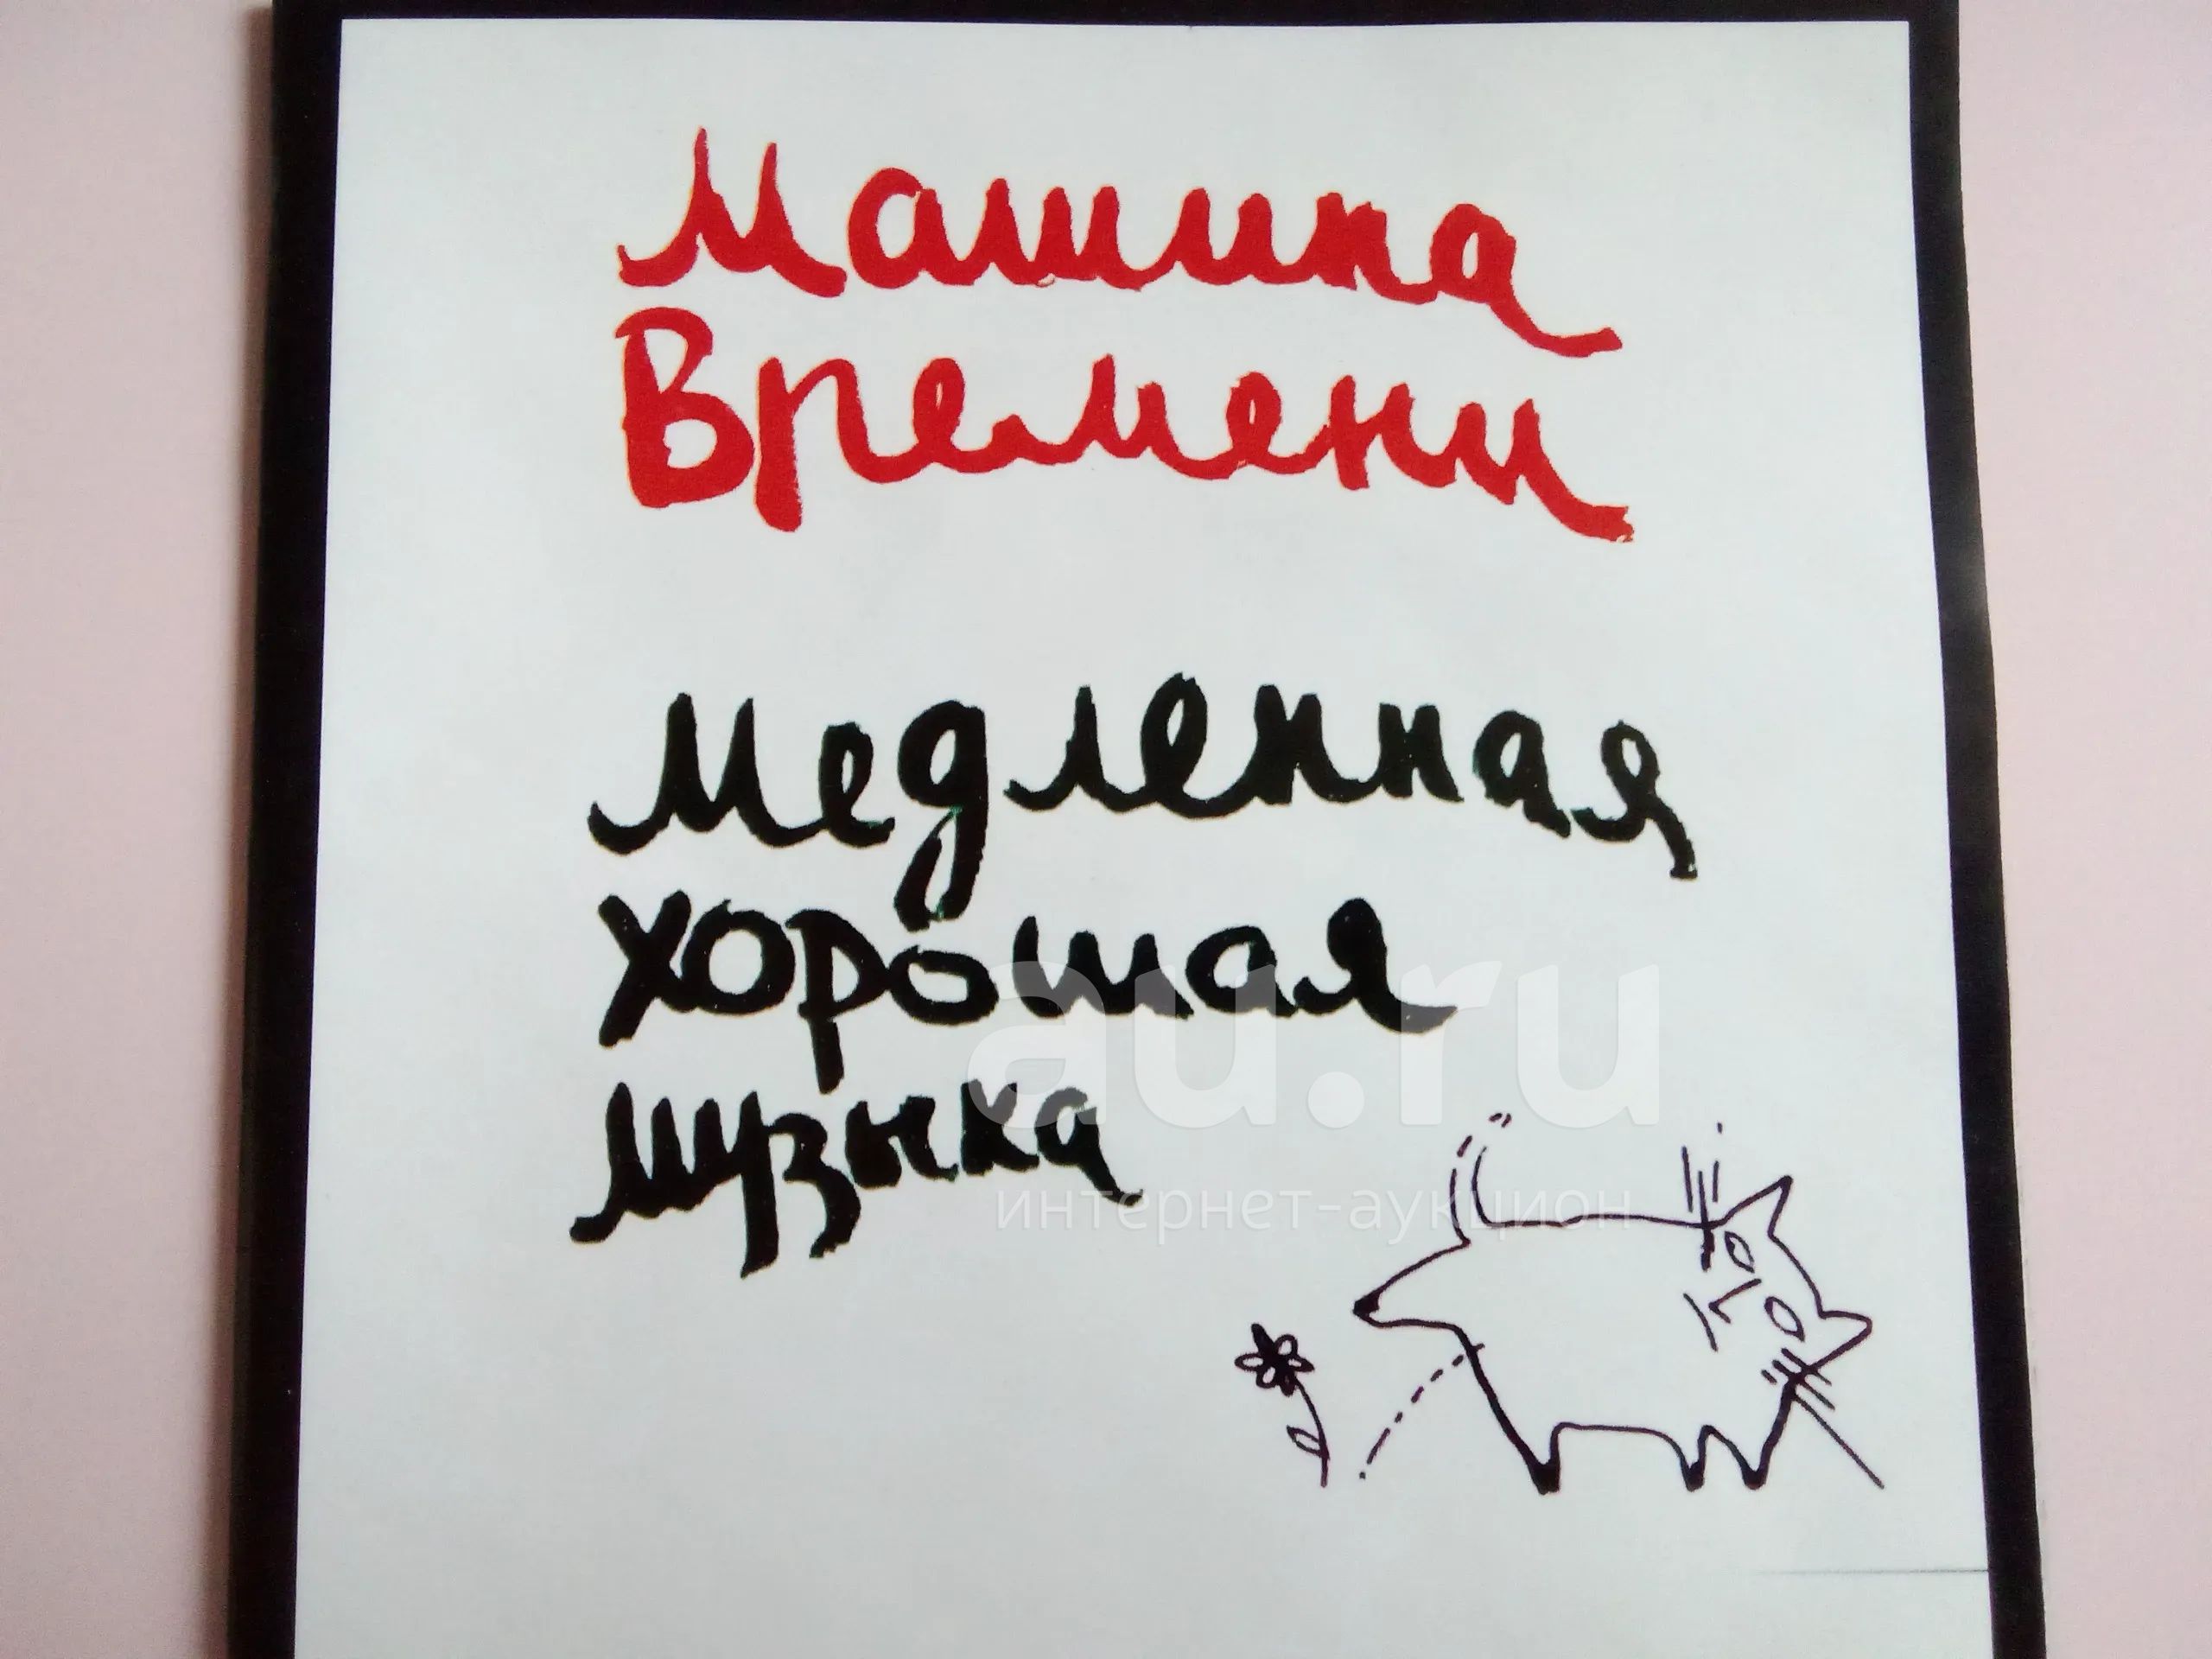 Машина
Времени
Медленная
хорошая
музыка
au.ru
интернет-аукцион